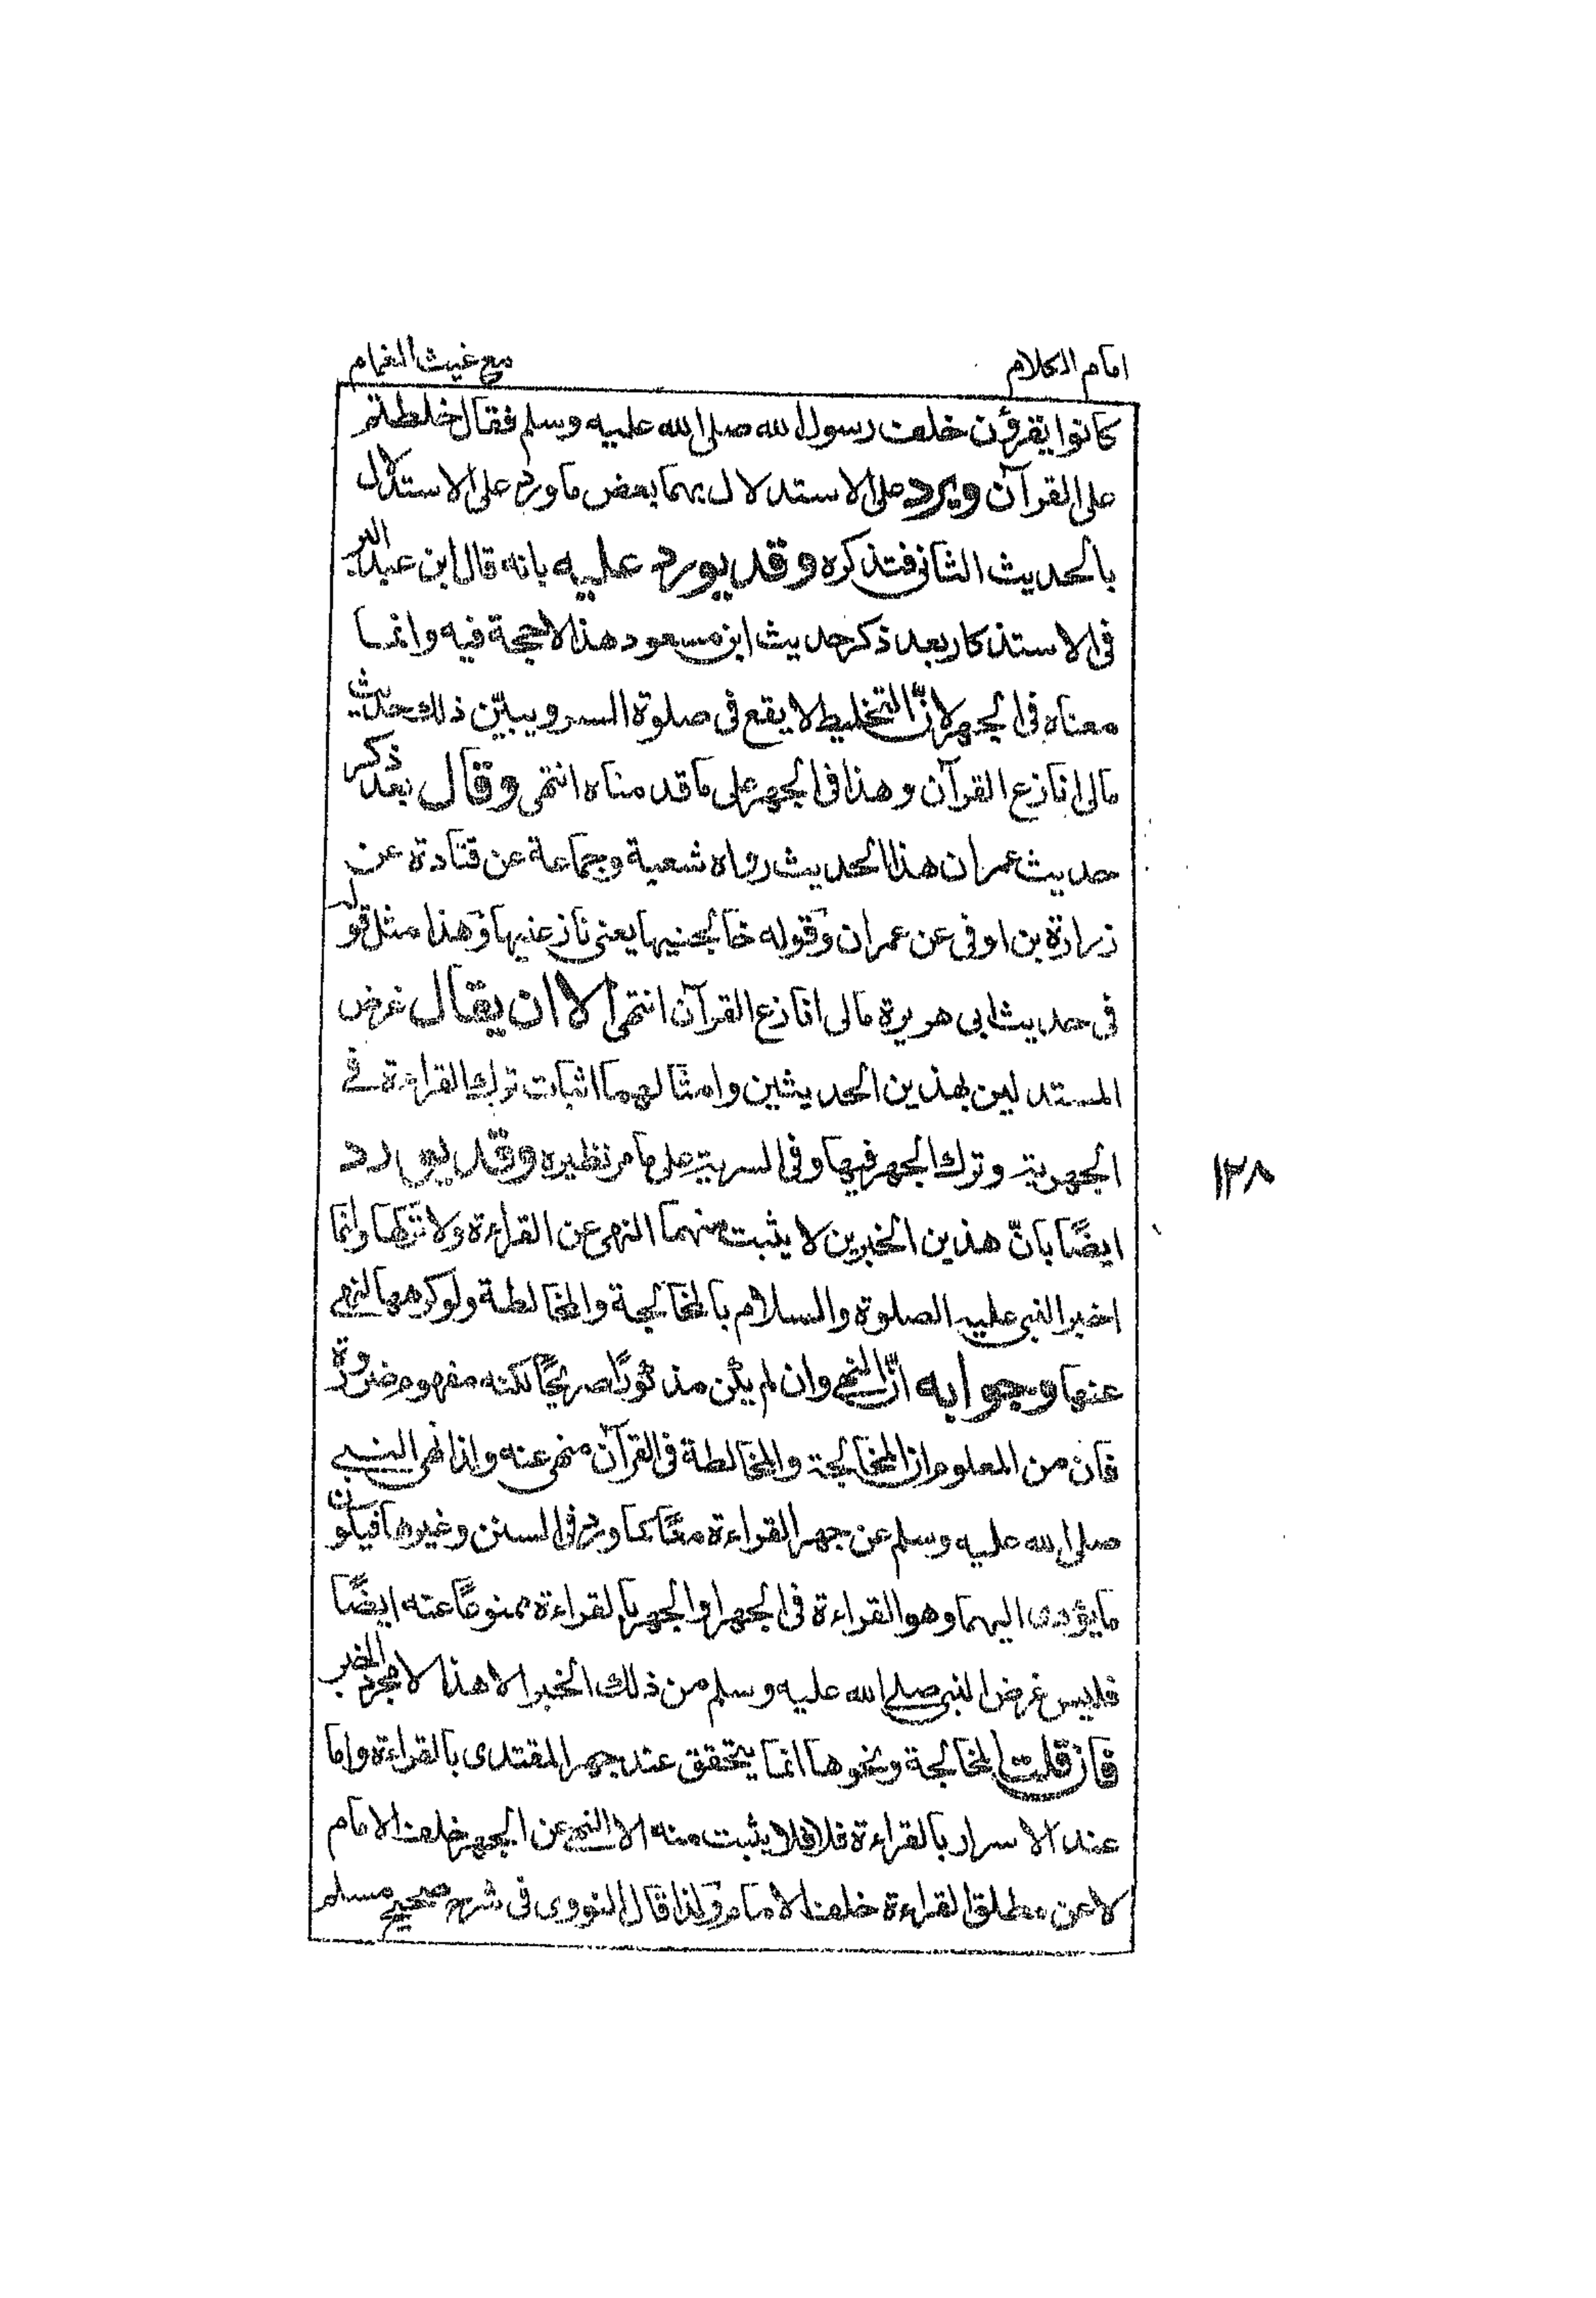 امام الكلام
مع غيث الغمام
كانوا يقرؤن خلف رسول الله صلى الله عليه وسلم فقال خلطتم
على القرآن ويرد على الاستدلال بهما بعض ما ورد على الاستدلال
بالحديث الثانى فتذكره وقد يورد عليه بانه قال ابن عبد البر
فى الاستذكار بعد ذكر حديث ابن مسعود هذا لا حجة فيه وانما
معناه فى الجهر لانّ التخليط لا يقع فى صلوة السر ويبيّن ذلك حديث
مالى انازع القرآن وهذا فى الجهر على ما قدمناه انتهى وقال بعد ذكر
حديث عمران هذا الحديث رواه شعبة وجماعة عن قتادة عن
زرارة بن اوفى عن عمران وقوله خالجنيها يعنى نازعنيها وهذا مثل قوله
فى حديث ابى هريرة مالى انازع القرآن انتهى الا ان يقال غرض
المستدلين بهذين الحديثين وامثالهما اثبات ترك القراءة فى
الجهرية وترك الجهر فيها وفى السرية على ما مر نظيره وقد يورد
ايضًا بانّ هذين الخبرين لا يثبت منهما النهى عن القراءة ولا تركها وانما
اخبر النبى عليه الصلوة والسلام بالمخالجة والمخالطة ولو كرهها لنهى
عنها وجوابه انّ النهى وان لم يكن مذكورًا صريحًا لكنه مفهوم ضرورة
فان من المعلوم ان المخالجة والمخالطة فى القرآن منهى عنه واذا نهى النبى
صلى الله عليه وسلم عن جهر القراءة معًا كما ورد فى السنن وغيرها فيكون
ما يؤدى اليهما وهو القراءة فى الجهر او الجهر بالقراءة ممنوعًا عنه ايضًا
فليس غرض النبى صلى الله عليه وسلم من ذلك الخبر الا هذا لا مجرد الخبر
فان قلت المخالجة ونحوها انما يتحقق عند جهر المقتدى بالقراءة واما
عند الاسرار بالقراءة فلا فلا يثبت منه الا النهى عن الجهر خلف الامام
لا عن مطلق القراءة خلف الامام ولذا قال النووى فى شرح صحيح مسلم
١٢٨